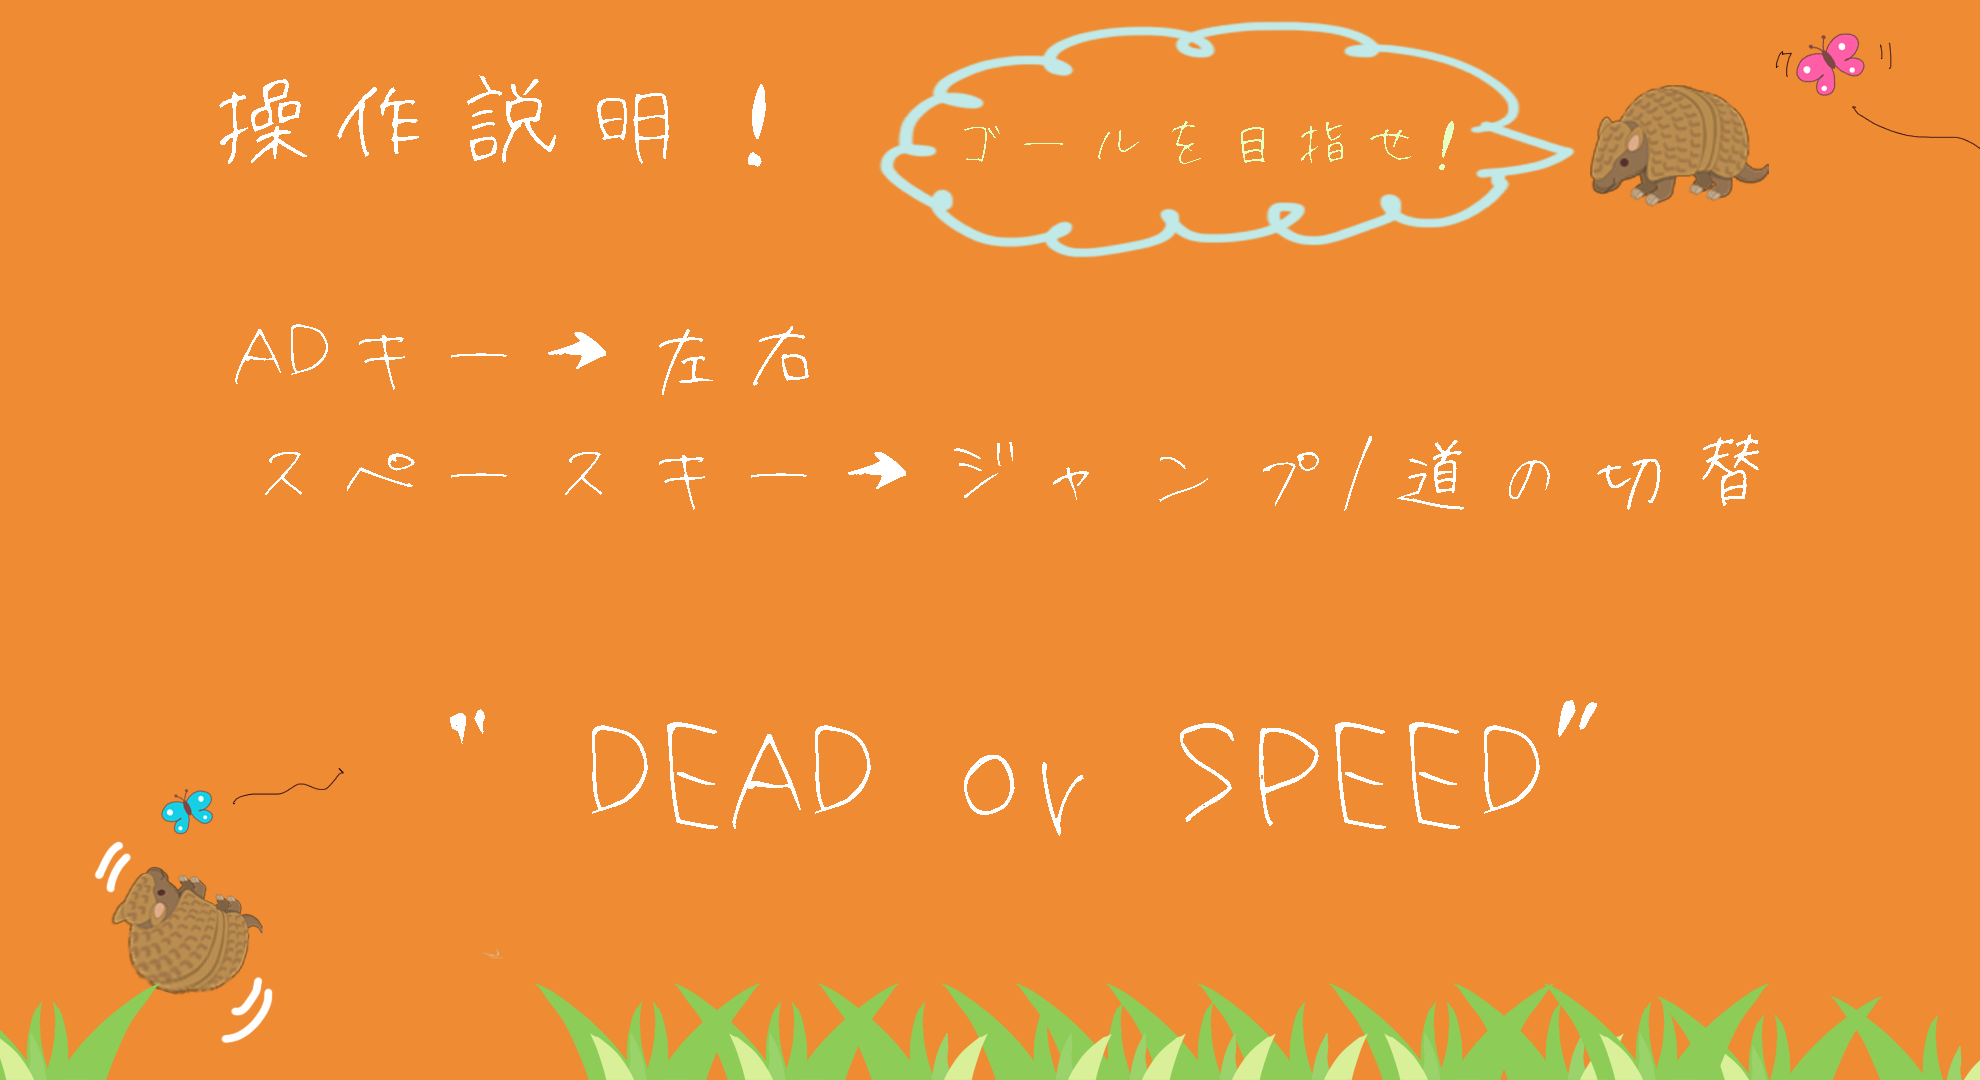 操作説明！
ゴールを目指せ！
ADキー→左右
スペースキー→ジャンプ/道の切替
"DEAD or SPEED"